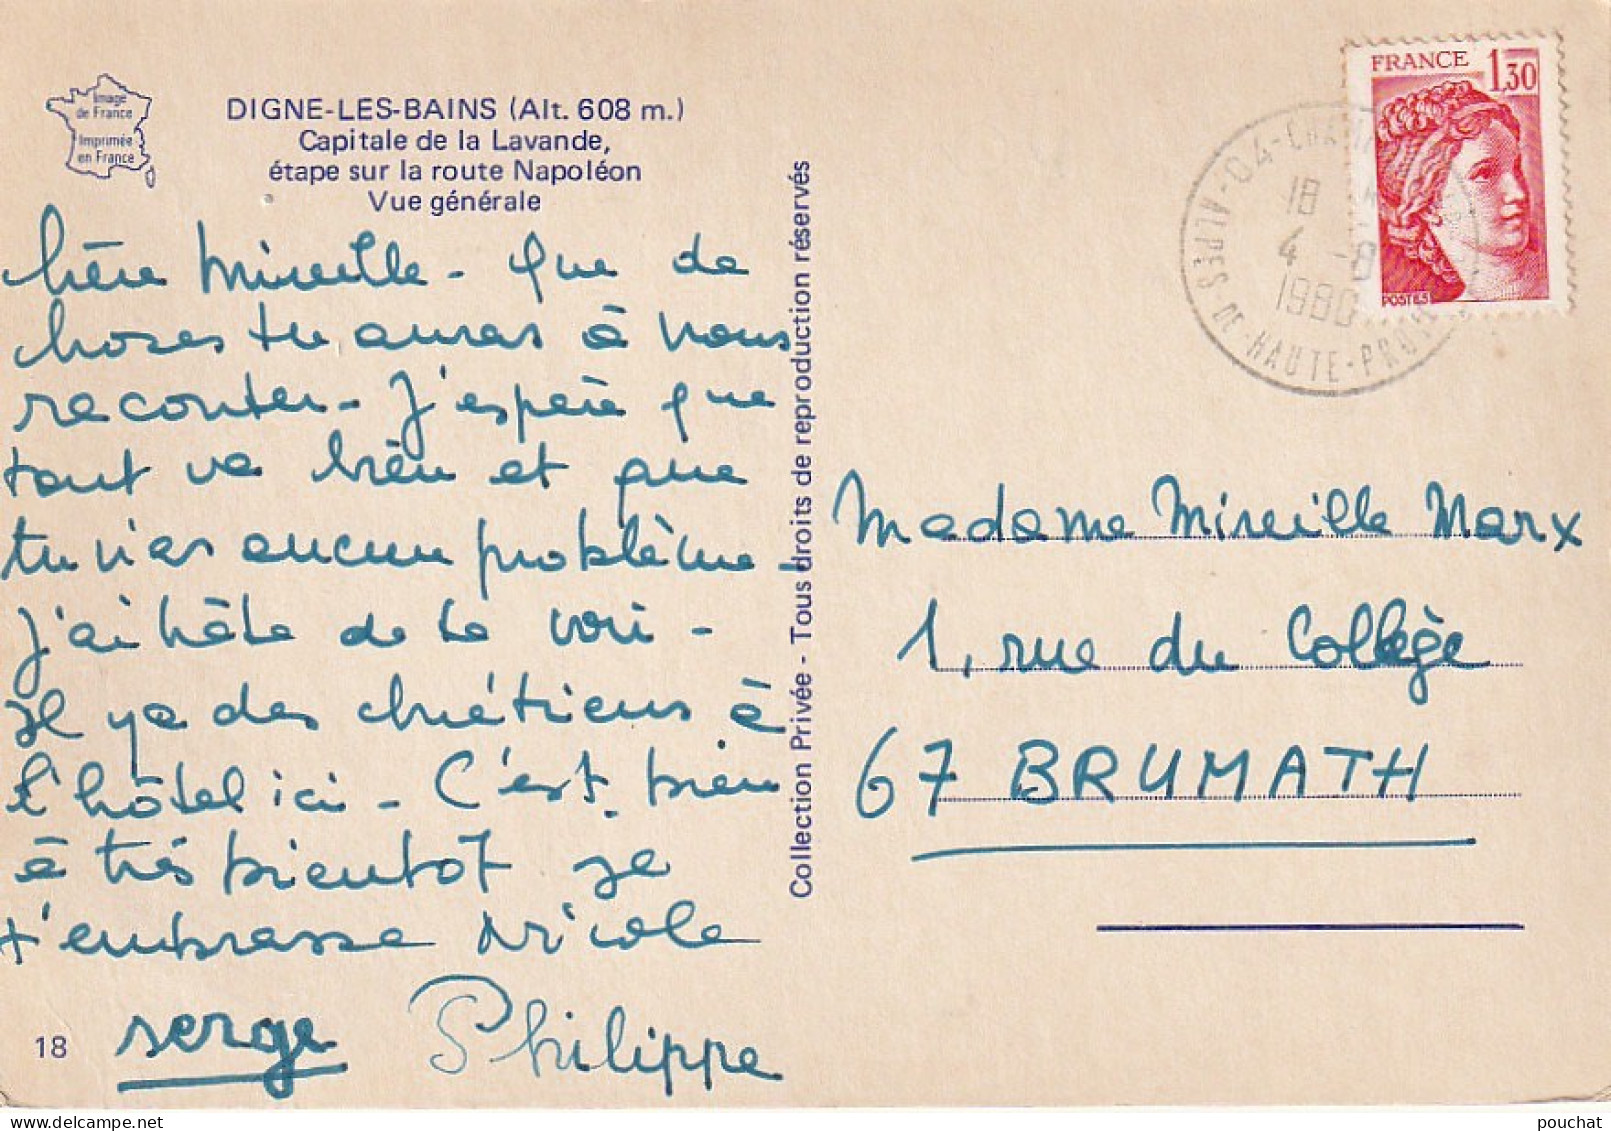 Image
de France
Imprimée
en France
DIGNE-LES-BAINS (Alt. 608 m.)
Capitale de la Lavande,
étape sur la route Napoléon
Vue générale
Chère Mireille - Que de
choses tu auras à nous
raconter - J'espère que
tout va bien et que
tu n'as aucun problème -
J'ai hâte de te voir -
Il y a des chrétiens à
l'hôtel ici - C'est bien
à très bientôt je
t'embrasse Nicole
serge Philippe
18
Collection Privée - Tous droits de reproduction réservés
FRANCE 1,30
POSTES
04-CHA
18
4 -8
1980
ALPES-DE-HAUTE-PROV
Madame Mireille Marx
1, rue du Collège
67 BRUMATH
pouchat